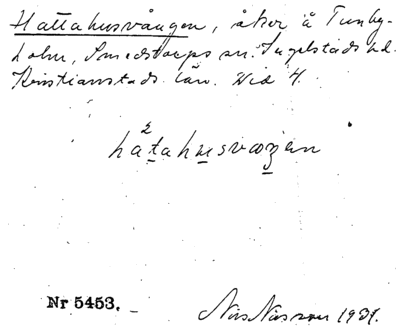 Hattahusvången, åker å Tunby-
holm, Smedstorps sn. Ingelstads hd.
Kristianstads län. Wid 4.
hatahusvaŋen
Nr 5453.
Nils Nilsson 1931.